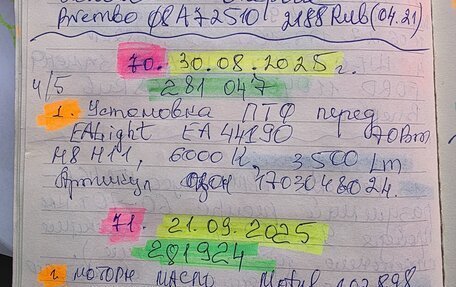 Brembo 08A72510 2188 Rub (04.21)
70. 30.08.2025 г.
ч/5 281 047
1. Установка ПТФ перед
FALight EA44190 70Bm
H8 H11, 6000 K, 3500 Lm
Артикул озон 1703048024.
71. 21.09.2025
281924
1. моторн масло Motul 102898